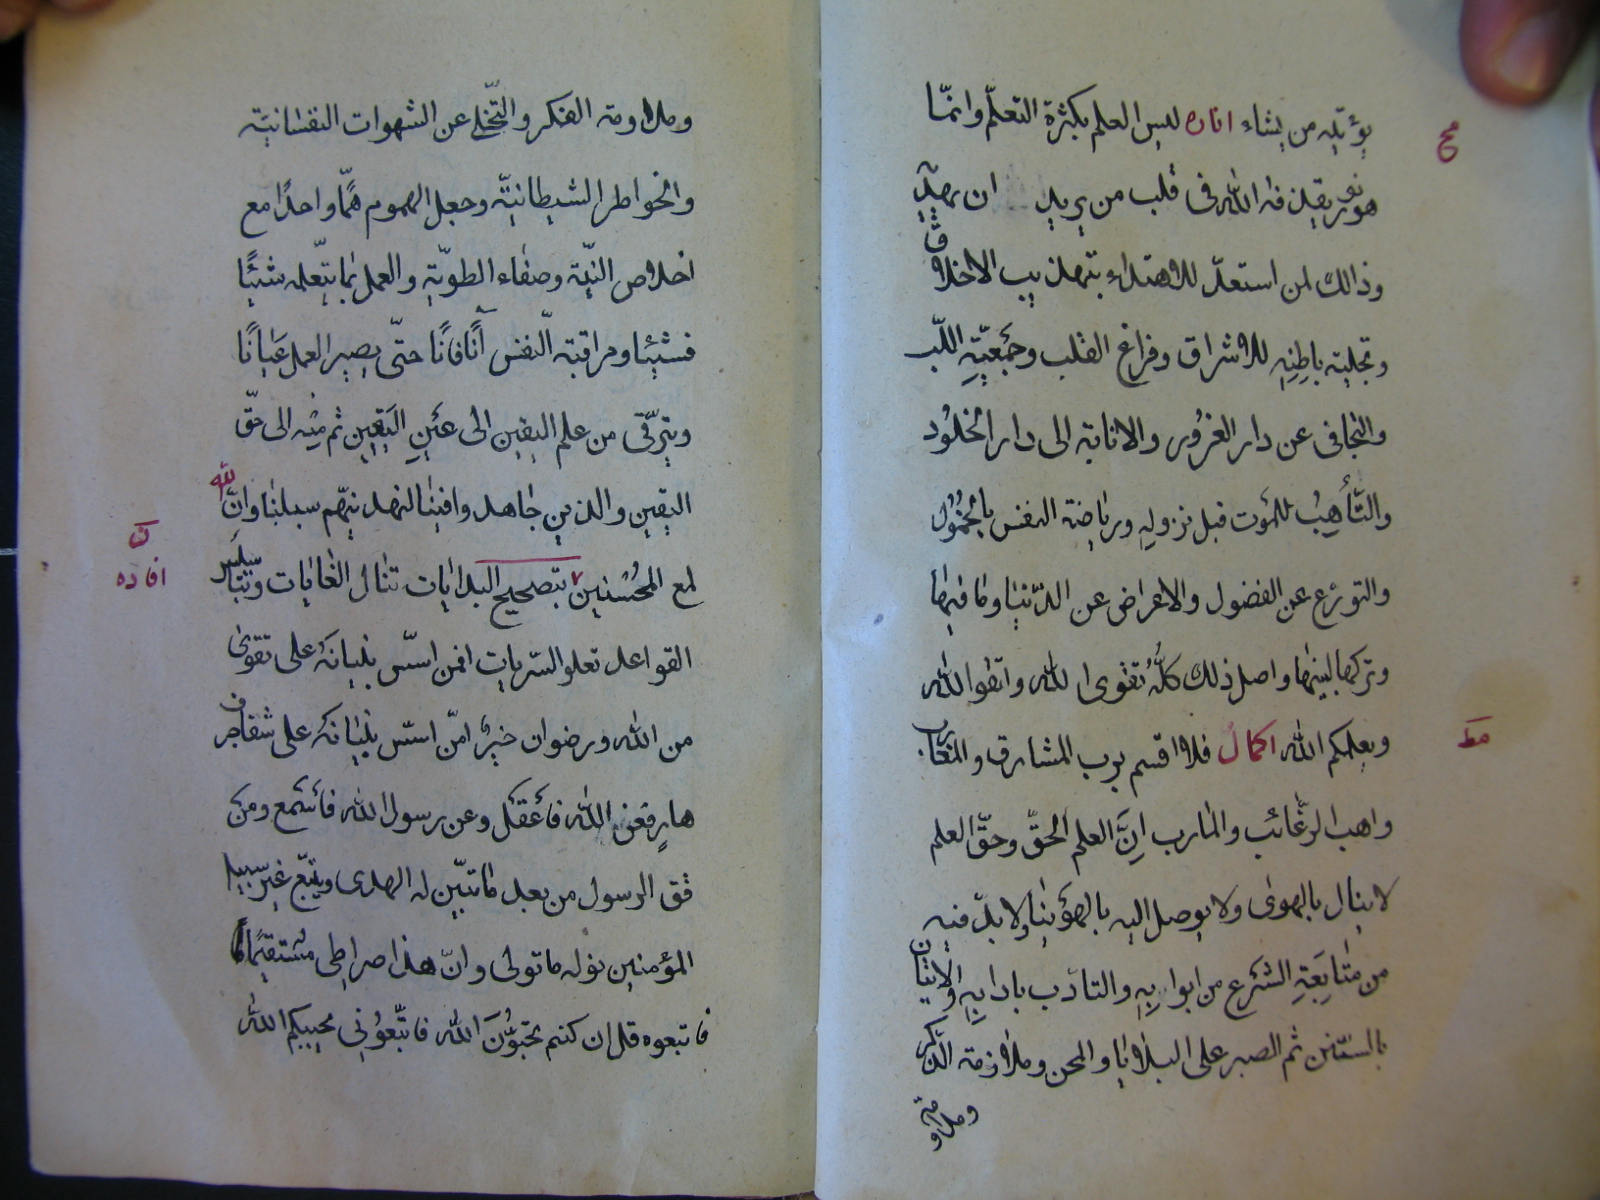 مح
يؤتيه من يشاء انارة ليس العلم بكثرة التعلّم وانمّا
هو نور يقذفه الله فى قلب من يريد ان يهديه
وذالك لمن استعدّ للاهتداء بتهذيب الاخلاق
وتجلية باطِنِهِ للاشراق وفراغ القلب وجَمْعيّةِ اللّب
والتجافى عن دار الغرور والانابة الى دار الخلُود
والتَّأَهبُ للمَوت قبل نزوله ورياضة النفس بالخمُوُل
والتورّع عن الفضول والاعراض عن الدّنيا وما فيها
وتركها لبنيها واصل ذلك كلّهُ تقوى الله واتقوا الله
مط
ويعلمكم الله اكمال فلا اقسم برب المشارق والمغارب
واهب الرغّائب والمارب اِنَّ العلم الحقّ وحقّ العلم
لا ينال بالهوى ولا يوصل اليه بالهوَينا ولا بدّ فيه
من متابَعَةِ الشرع من ابوابِهِ والتادّب بادابِهِ والاتيان
بالسّنن ثم الصبر على البلايا والمحن وملازمة الذّكر
وملاومة
وملاومة الفكر والتّخلى عن الشهوات النفسانيّة
والخواطر الشيطانيّة وجعل الهموم همًّا واحدًا مع
اخلاص النيّة وصفاء الطويّة والعمل بما يتعلمه شيئًا
فشيئا ومراقبة النّفس آنًا فانًا حتّى يصير العمل عَيانًا
ويترقّى من علم اليقين الى عَيْنِ اليَقين ثم مِنْه الى حقّ
اليقين والذين جاهدوا فينا لنهدينهّم سبلنا وانّ الله
لمع المحُسْنين بتصحيح البدايات تنال الغايات وبتاسيس
ن
افاده
القواعد تعلو السّريات افمن اسّس بنيانَهُ على تقوى
من الله ورضوان خيرٌ امّن اسّس بنيانهُ على شفا جرف
هارٍ فعن الله فاَعْقَل وعن رسول الله فاسْتَمع ومَن
قق الرسول من بعد ما تبيّن له الهدى ويتبّع غير سبيل
المؤمنين نوله ما تولى وانّ هذا صراطى مسْتقيمًا
فاتبعوه قل ان كنتم تحبوُّنَ الله فاتّبعُوُنى يحببكم الله